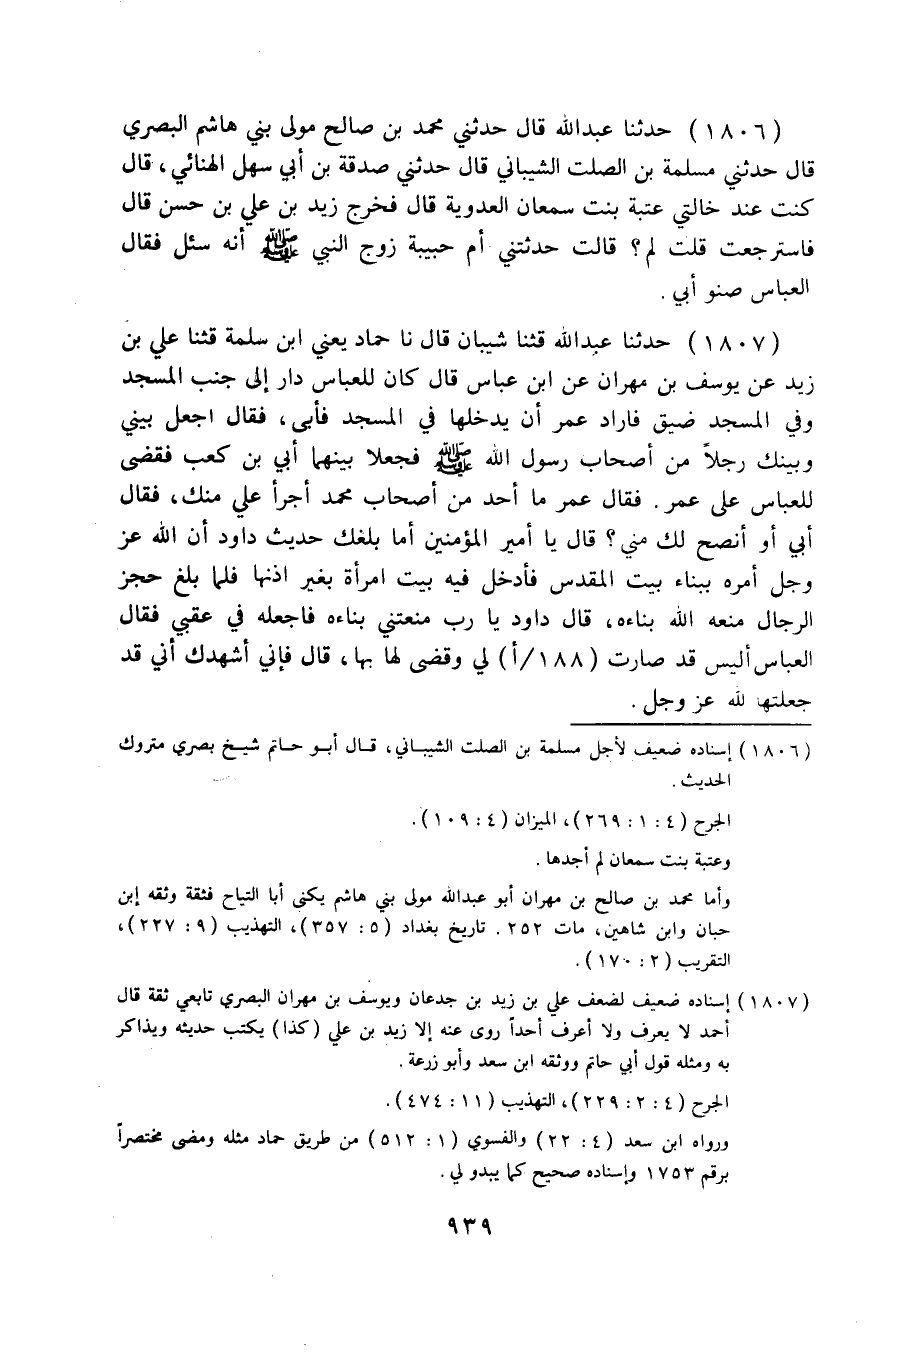 (١٨٠٦) حدثنا عبدالله قال حدثني محمد بن صالح مولى بني هاشم البصري
قال حدثني مسلمة بن الصلت الشيباني قال حدثني صدقة بن أبي سهل الهنائي، قال
كنت عند خالتي عتبة بنت سمعان العدوية قال فخرج زيد بن علي بن حسن قال
فاسترجعت قلت لم؟ قالت حدثتني أم حبيبة زوج النبي ﷺ أنه سئل فقال
العباس صنو أبي.
(١٨٠٧) حدثنا عبدالله قثنا شيبان قال نا حماد يعني ابن سلمة قثنا علي بن
زيد عن يوسف بن مهران عن ابن عباس قال كان للعباس دار إلى جنب المسجد
وفي المسجد ضيق فاراد عمر أن يدخلها في المسجد فأبى، فقال اجعل بيني
وبينك رجلاً من أصحاب رسول الله ﷺ فجعلا بينهما أبي بن كعب فقضى
للعباس على عمر. فقال عمر ما أحد من أصحاب محمد أجرأ علي منك، فقال
أبي أو أنصح لك مني؟ قال يا أمير المؤمنين أما بلغك حديث داود أن الله عز
وجل أمره ببناء بيت المقدس فأدخل فيه بيت امرأة بغير اذنها فلما بلغ حجز
الرجال منعه الله بناءه، قال داود يا رب منعتني بناءه فاجعله في عقبي فقال
العباس أليس قد صارت (١٨٨/أ) لي وقضى لها بها، قال فإني أشهدك أني قد
جعلتها لله عز وجل.
(١٨٠٦) إسناده ضعيف لأجل مسلمة بن الصلت الشيباني، قال أبو حاتم شيخ بصري متروك
الحديث.
الجرح (٤: ١: ٢٦٩)، الميزان (٤: ١٠٩).
وعتبة بنت سمعان لم أجدها.
وأما محمد بن صالح بن مهران أبو عبدالله مولى بني هاشم يكنى أبا التياح فثقة وثقه إبن
حبان وابن شاهين، مات ٢٥٢. تاريخ بغداد (٥: ٣٥٧)، التهذيب (٩: ٢٢٧)،
التقريب (٢: ١٧٠).
(١٨٠٧) إسناده ضعيف لضعف علي بن زيد بن جدعان ويوسف بن مهران البصري تابعي ثقة قال
أحمد لا يعرف ولا أعرف أحداً روى عنه إلا زيد بن علي (كذا) يكتب حديثه ويذاكر
به ومثله قول أبي حاتم ووثقه ابن سعد وأبو زرعة.
الجرح (٤: ٢: ٢٢٩)، التهذيب (١١: ٤٧٤).
ورواه ابن سعد (٤: ٢٢) والفسوي (١: ٥١٢) من طريق حماد مثله ومضى مختصراً
برقم ١٧٥٣ وإسناده صحيح كما يبدو لي.
٩٣٩